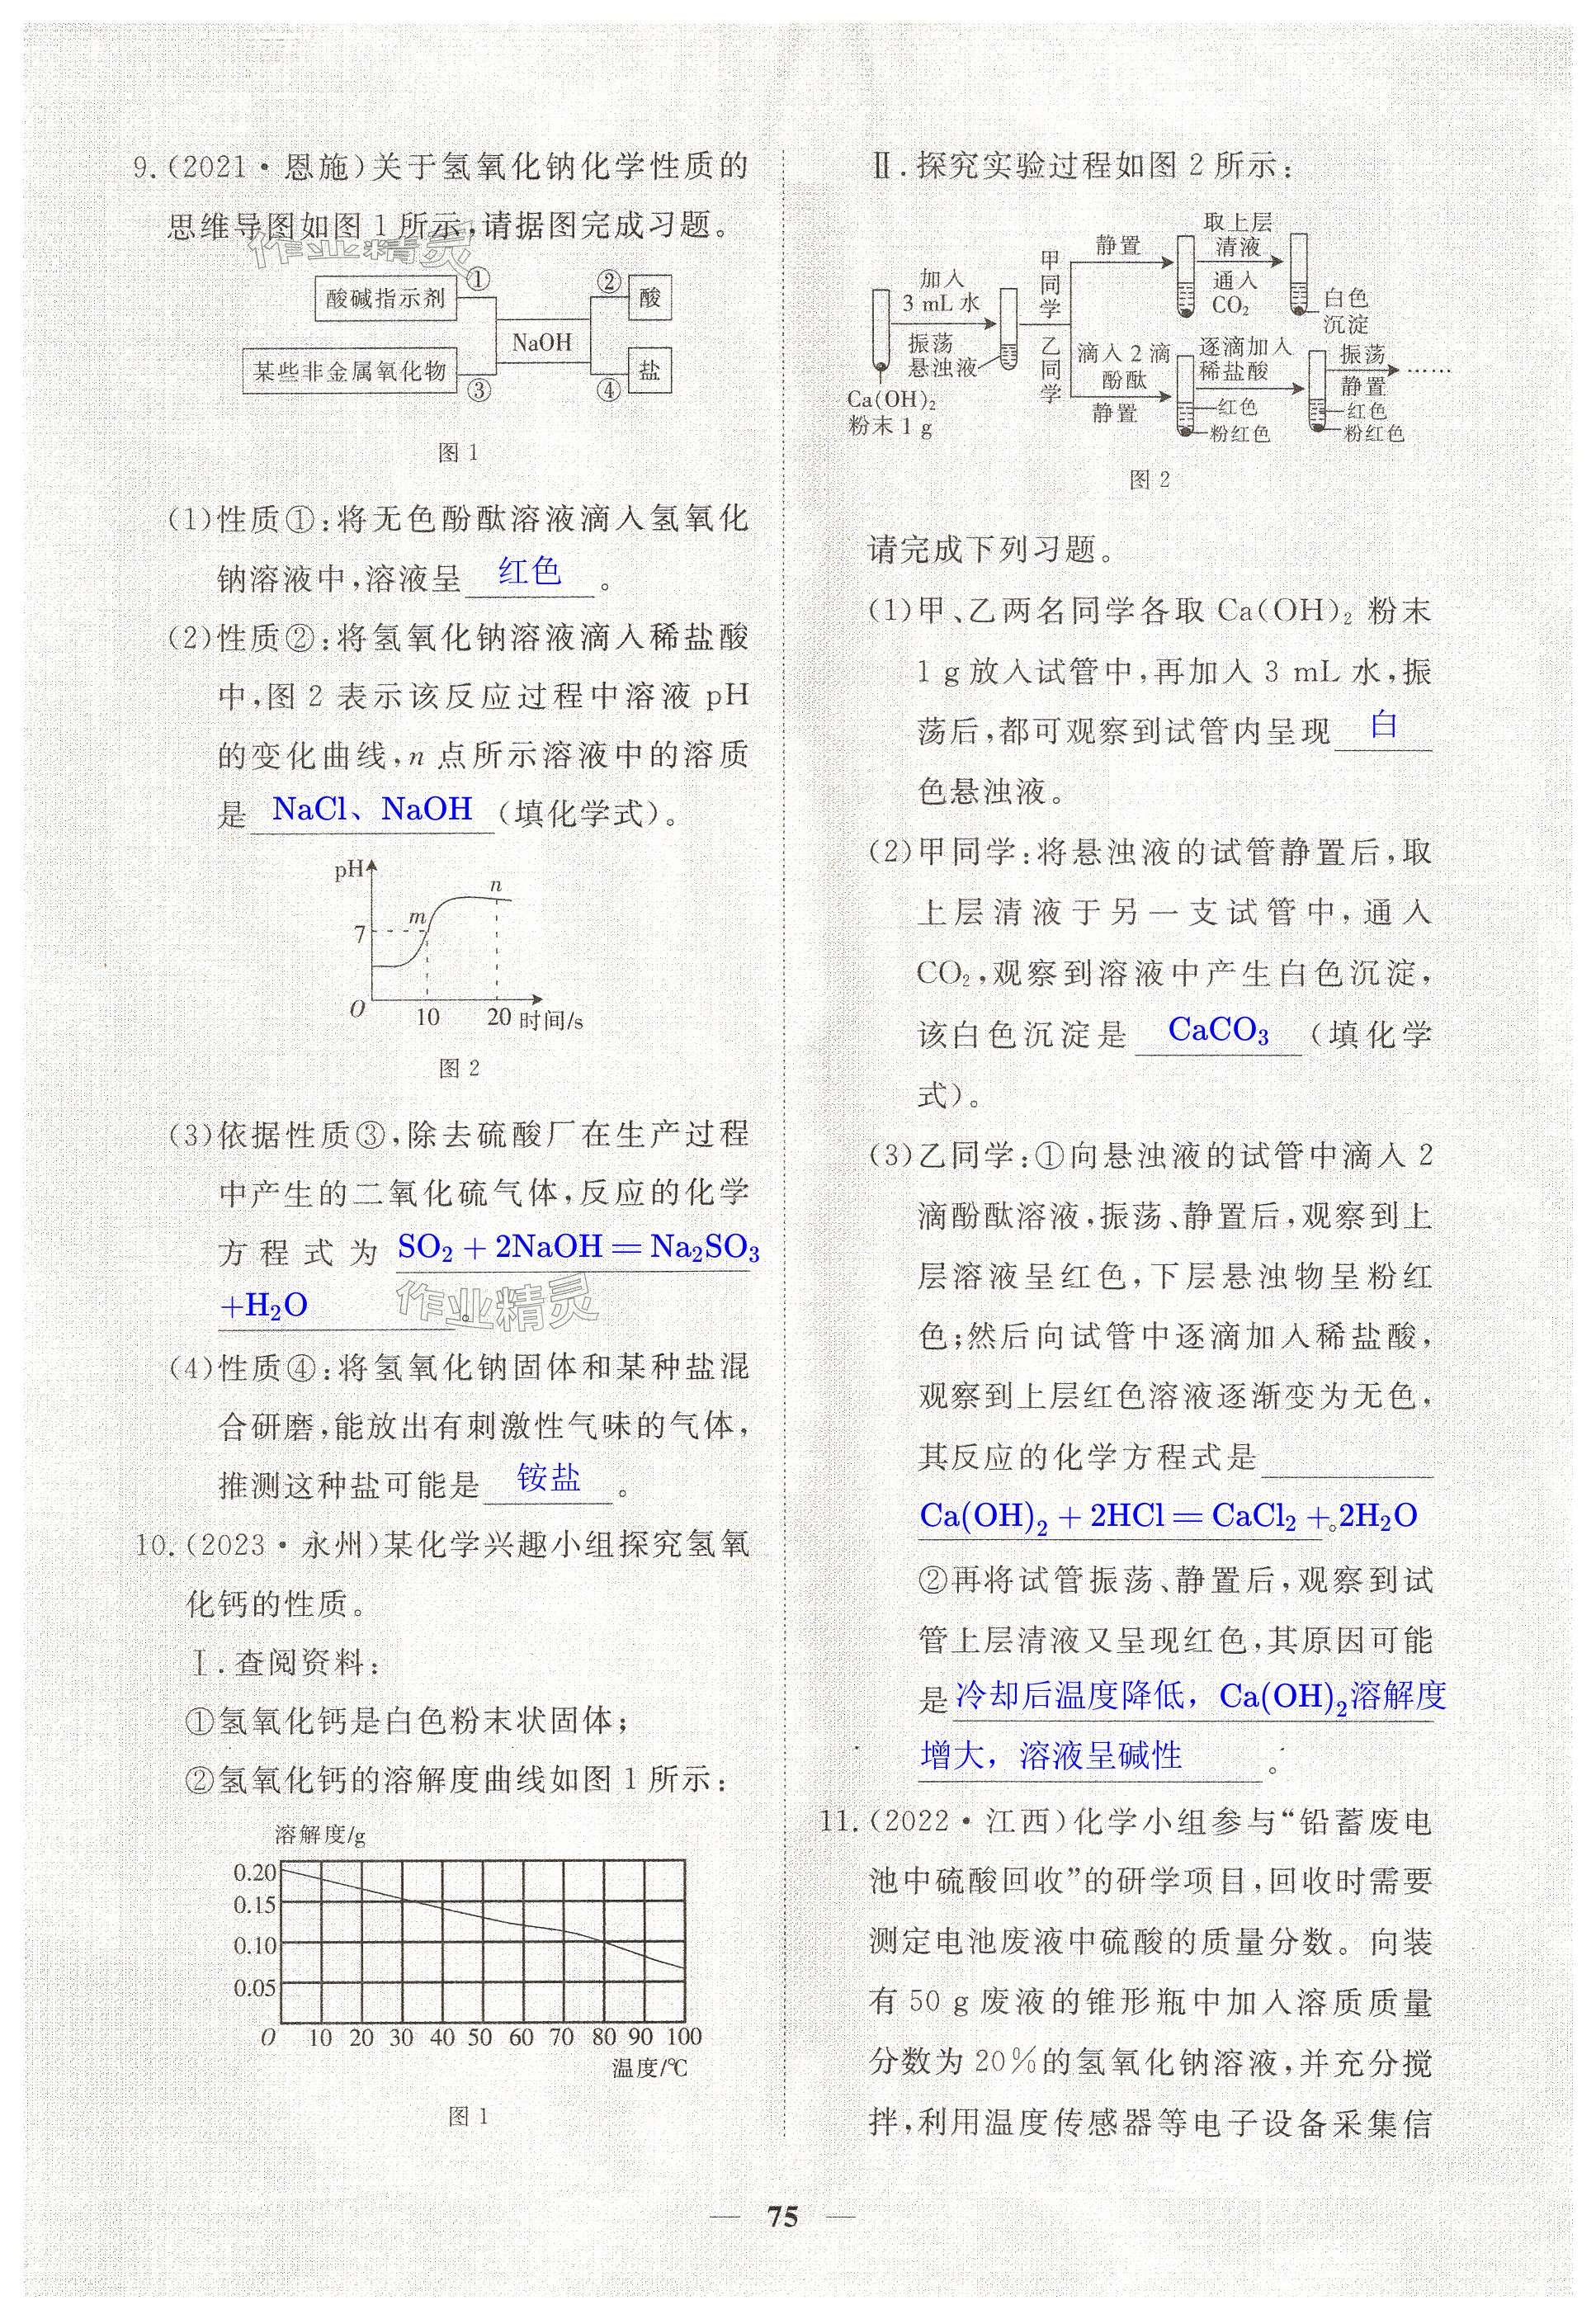 9.(2021·恩施)关于氢氧化钠化学性质的
思维导图如图 1 所示,请据图完成习题。
作业精灵
酸碱指示剂
①
②
酸
NaOH
某些非金属氧化物
③
④
盐
图 1
(1)性质①:将无色酚酞溶液滴入氢氧化
钠溶液中,溶液呈 红色 。
(2)性质②:将氢氧化钠溶液滴入稀盐酸
中,图 2 表示该反应过程中溶液 pH
的变化曲线,n 点所示溶液中的溶质
是 NaCl、NaOH (填化学式)。
pH
n
m
7
O
10
20
时间/s
图 2
(3)依据性质③,除去硫酸厂在生产过程
中产生的二氧化硫气体,反应的化学
方程式为 SO₂ + 2NaOH = Na₂SO₃
+H₂O 。
作业精灵
(4)性质④:将氢氧化钠固体和某种盐混
合研磨,能放出有刺激性气味的气体,
推测这种盐可能是 铵盐 。
10.(2023·永州)某化学兴趣小组探究氢氧
化钙的性质。
Ⅰ.查阅资料:
①氢氧化钙是白色粉末状固体;
②氢氧化钙的溶解度曲线如图 1 所示:
溶解度/g
0.20
0.15
0.10
0.05
O 10 20 30 40 50 60 70 80 90 100
温度/℃
图 1
Ⅱ.探究实验过程如图 2 所示:
Ca(OH)₂
粉末 1 g
加入
3 mL 水
振荡
悬浊液
甲同学
静置
取上层
清液
通入
CO₂
白色
沉淀
乙同学
滴入 2 滴
酚酞
静置
红色
粉红色
逐滴加入
稀盐酸
红色
粉红色
振荡
静置
……
图 2
请完成下列习题。
(1)甲、乙两名同学各取 Ca(OH)₂ 粉末
1 g 放入试管中,再加入 3 mL 水,振
荡后,都可观察到试管内呈现 白
色悬浊液。
(2)甲同学:将悬浊液的试管静置后,取
上层清液于另一支试管中,通入
CO₂,观察到溶液中产生白色沉淀,
该白色沉淀是 CaCO₃ (填化学
式)。
(3)乙同学:①向悬浊液的试管中滴入 2
滴酚酞溶液,振荡、静置后,观察到上
层溶液呈红色,下层悬浊物呈粉红
色;然后向试管中逐滴加入稀盐酸,
观察到上层红色溶液逐渐变为无色,
其反应的化学方程式是
Ca(OH)₂ + 2HCl = CaCl₂ + 2H₂O 。
②再将试管振荡、静置后,观察到试
管上层清液又呈现红色,其原因可能
是 冷却后温度降低，Ca(OH)₂溶解度
增大，溶液呈碱性 。
11.(2022·江西)化学小组参与“铅蓄废电
池中硫酸回收”的研学项目,回收时需要
测定电池废液中硫酸的质量分数。向装
有 50 g 废液的锥形瓶中加入溶质质量
分数为 20%的氢氧化钠溶液,并充分搅
拌,利用温度传感器等电子设备采集信
— 75 —